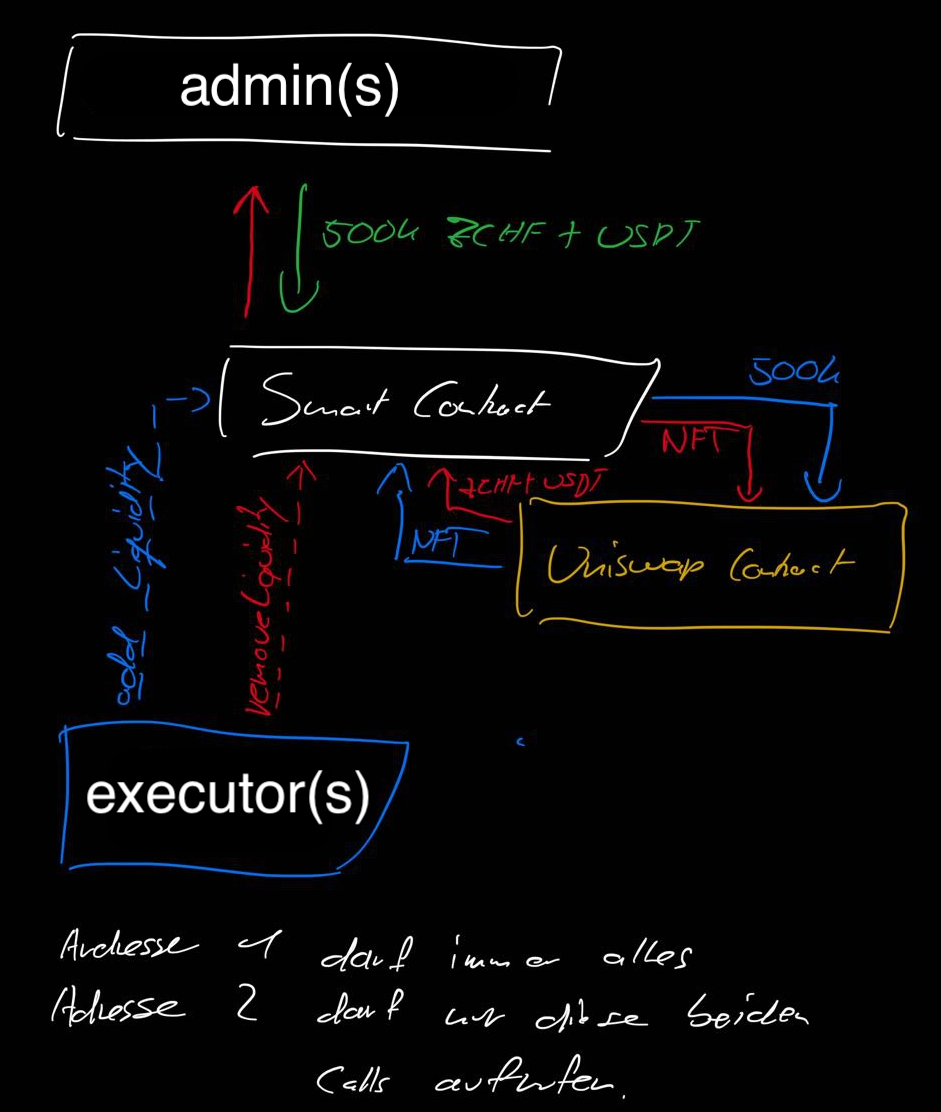 admin(s)
500k ZCHF + USDT
Smart Contract
500k
NFT
ZCHF + USDT
NFT
Uniswap Contract
add Liquidity
remove Liquidity
executor(s)
Adresse 1 darf immer alles
Adresse 2 darf nur diese beiden
Calls aufrufen.